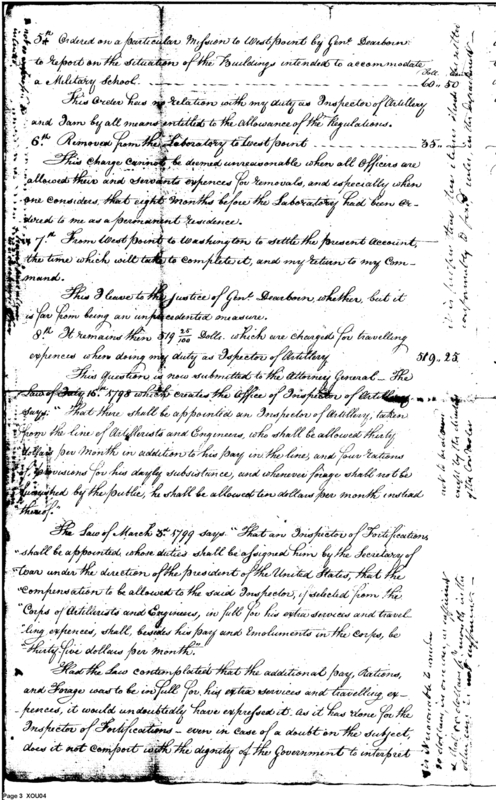 5th Ordered on a particular Mission to West point by Genl. Dearborn
to report on the situation of the Buildings intended to accommodate
a Military School. 60..50
This Order has no relation with my duty as Inspector of Artillery
and I am by all means entitled to the Allowance of the Regulations.
6th. Removed from the Laboratory to West point 35..
This Charge cannot be deemed unreasonable when all Officers are
allowed their and servants expences for removals, and especially when
one considers, that eight Months before the Laboratory had been or-
dered to me as a permanent residence.
7th. From West point to Washington to settle the present Account,
the time which will take to complete it, and my return to my Com-
mand.
This I leave to the Justice of Genl. Dearborn, whether, but it
is far from being an unprecedented measure.
8th. It remains then 519 25/100 Dolls. which are charged for travelling
expences when doing my duty as Ispector of Artillery 519..25
This Question is now submitted to the Attorney General — The
Law of July 16th. 1798 which creates the Office of Inspector of Artillery
says. "That there shall be appointed an Inspector of Artillery, taken
from the line of Artillerists and Engineers, who shall be allowed thirty
dollars per Month in addition to his pay in the line, and four rations
of provisions for his dayly subsistance, and whenever forage shall not be
furnished by the public, he shall be allowed ten dollars per month instead
thereof."
The Law of March 3d. 1799 says. "That an Inspector of Fortifications
"shall be appointed whose duties shall be assigned him by the Secretary of
War under the direction of the president of the United States, that the
compensation to be allowed to the said Inspector, if selected from the
"Corps of Artillerists and Engineers, in full for his extra services and travel
"ling expences, shall, besides his pay and Emoluments in the corps, be
"thirty five dollars per month."
Had the Law contemplated that the additional pay, Rations,
and Forage was to be in full for his extra services and travelling ex-
pences, it would undoubtedly have expressed it. As it has done for the
Inspector of Fortifications — even in case of a doubt on the subject,
does it not comport with the dignity of the Government to interpret
Page 3 XOU04